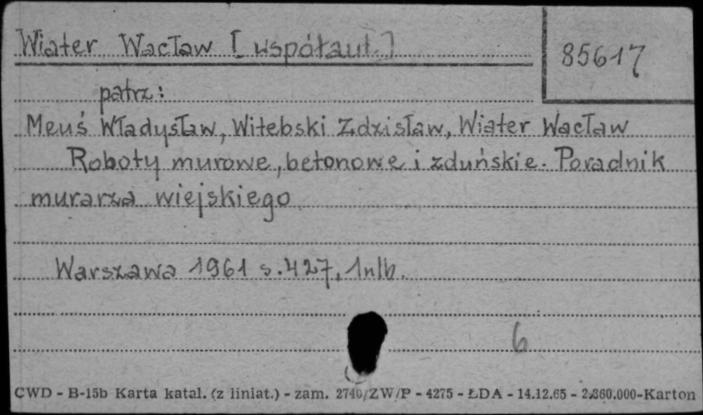 Wiater Wacław [współaut.]
85617
patrz:
Meuś Władysław, Witebski Zdzisław, Wiater Wacław
Roboty murowe, betonowe i zduńskie. Poradnik
murarza wiejskiego
Warszawa 1961 s. 427, 1nlb.
6
CWD - B-15b Karta katal. (z liniat.) - zam. 2740/ZW/P - 4275 - ŁDA - 14.12.65 - 2.860.000-Karton